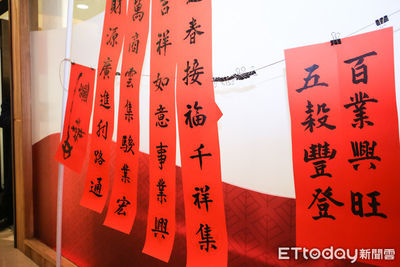 百業興旺
五穀豐登
迎春接福千祥集
吉祥如意事業興
萬商雲集駿業宏
財源廣進利路通
ETtoday新聞雲